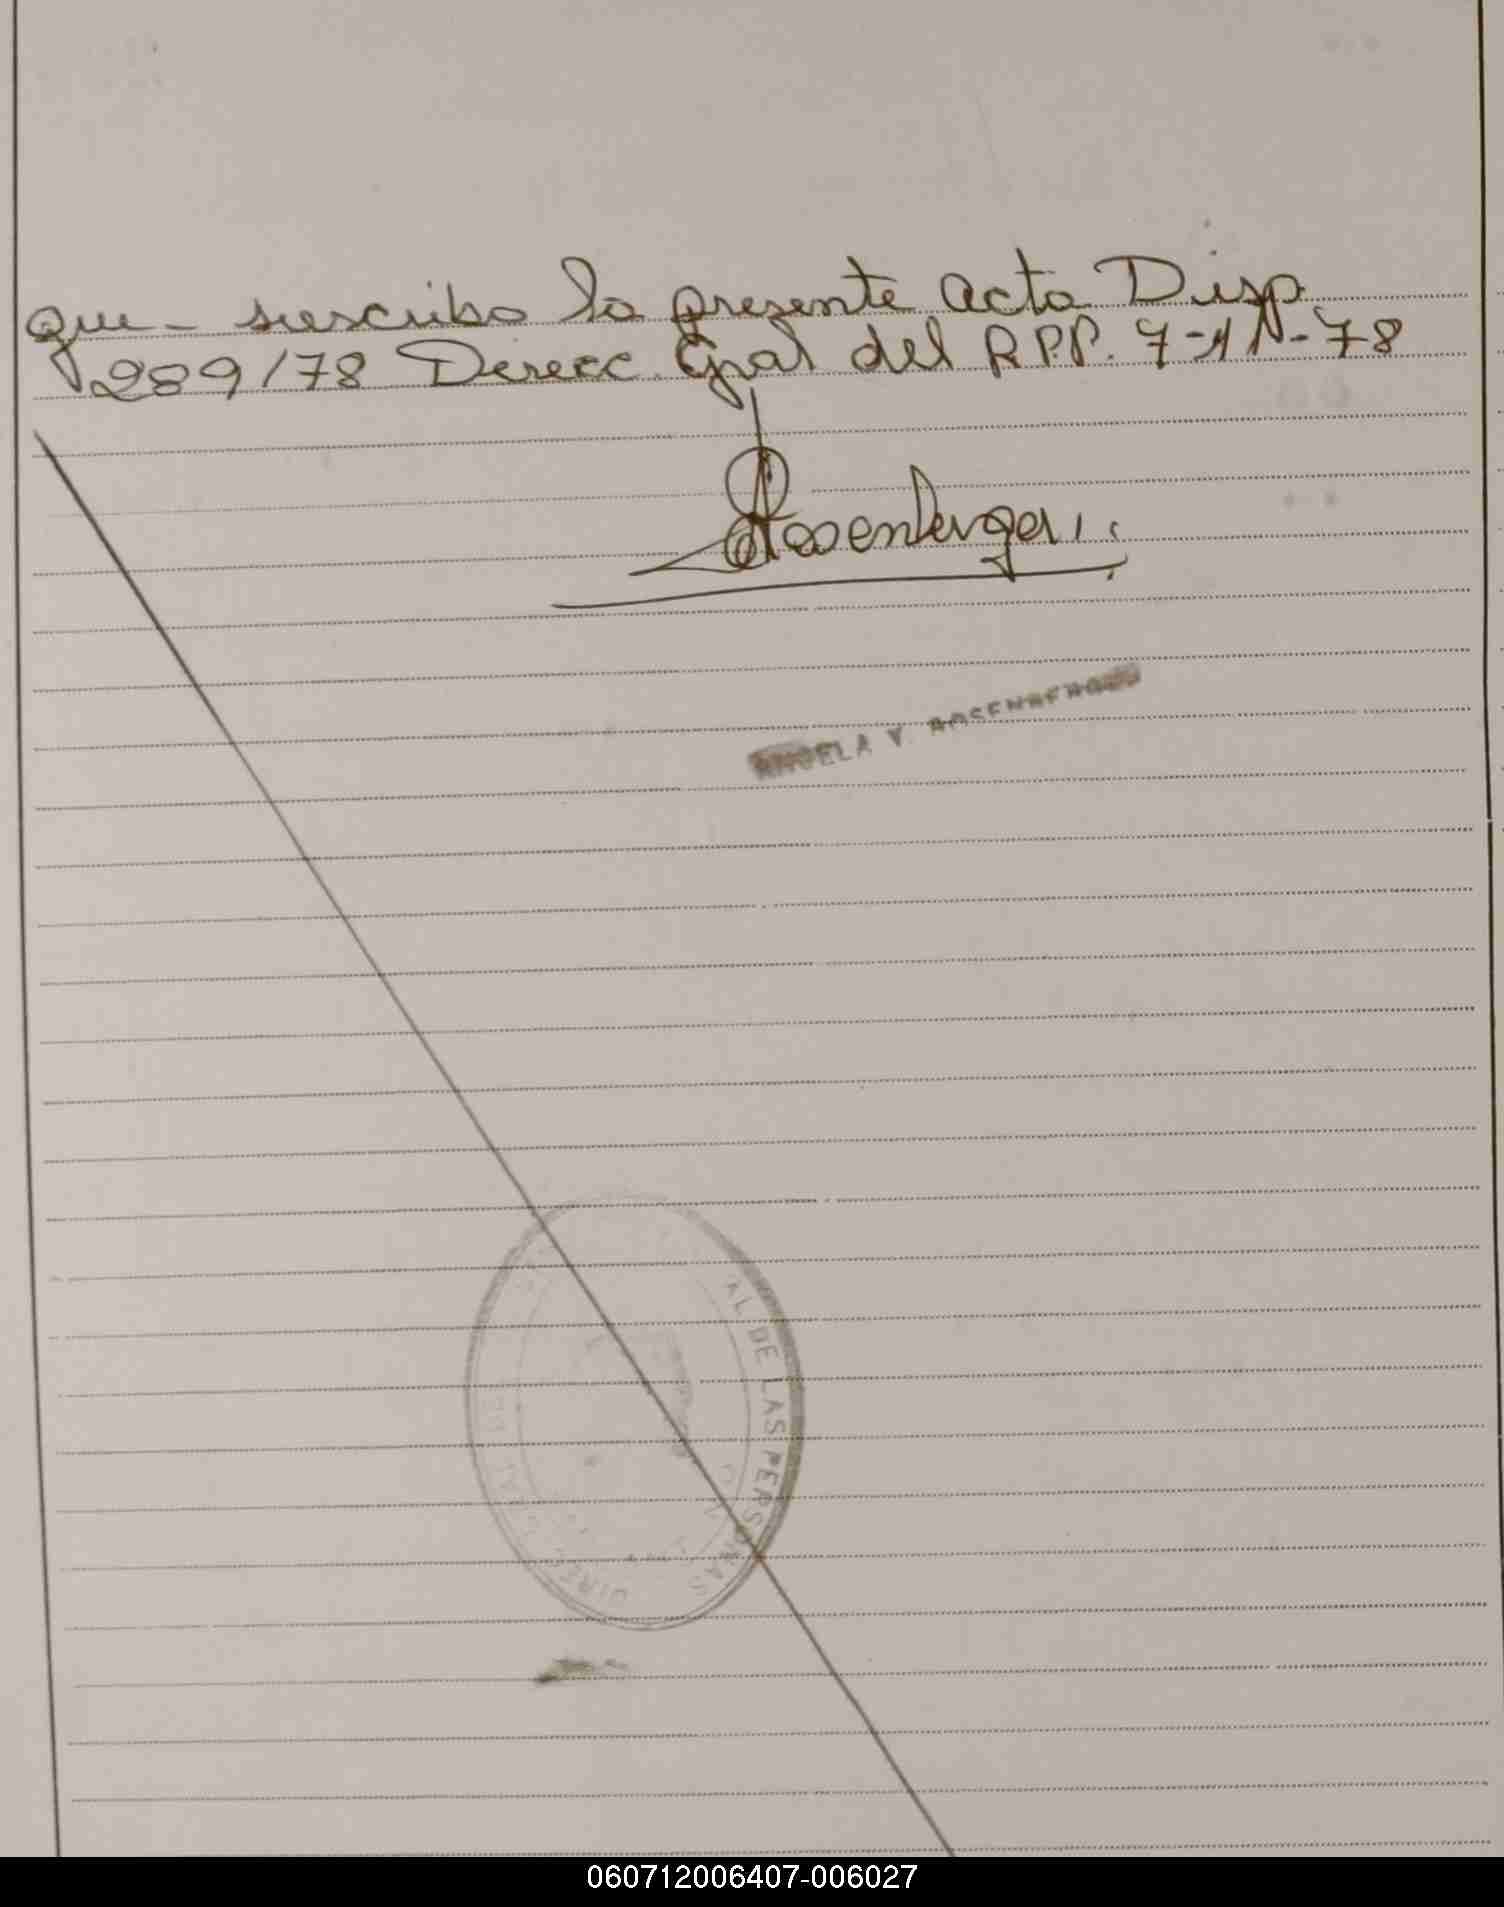 que - suscribo la presente acta Disp.
289/78 Direcc. Gral del R.P.P. 7-11-78
Rosenberger
ANGELA V. ROSENBERGER
AL DE LAS PERSONAS
060712006407-006027